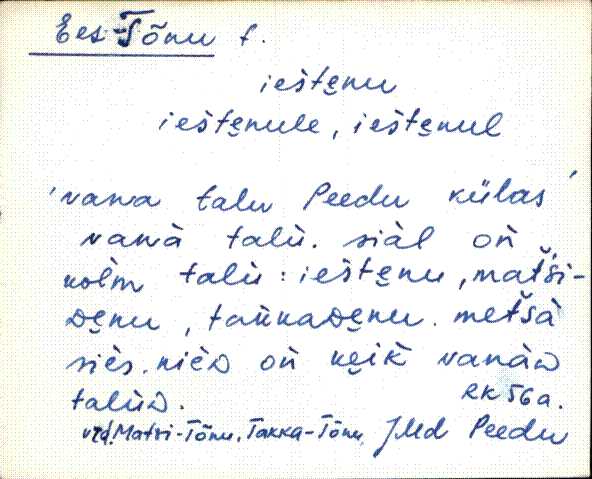 Ees-Tõnu t.
iešte̮nu
iešte̮nule, iešte̮nul
'vana talu Peedu külas'
vanà talù. siàl oǹ
kolm talù: iešte̮nu, matši-
de̮nu, taùkade̮nu. metšà
siès. nièd oǹ ke̮ik vanàd
talùd. RK 56a.
vrd. Matsi-Tõnu, Takka-Tõnu, JMd Peedu